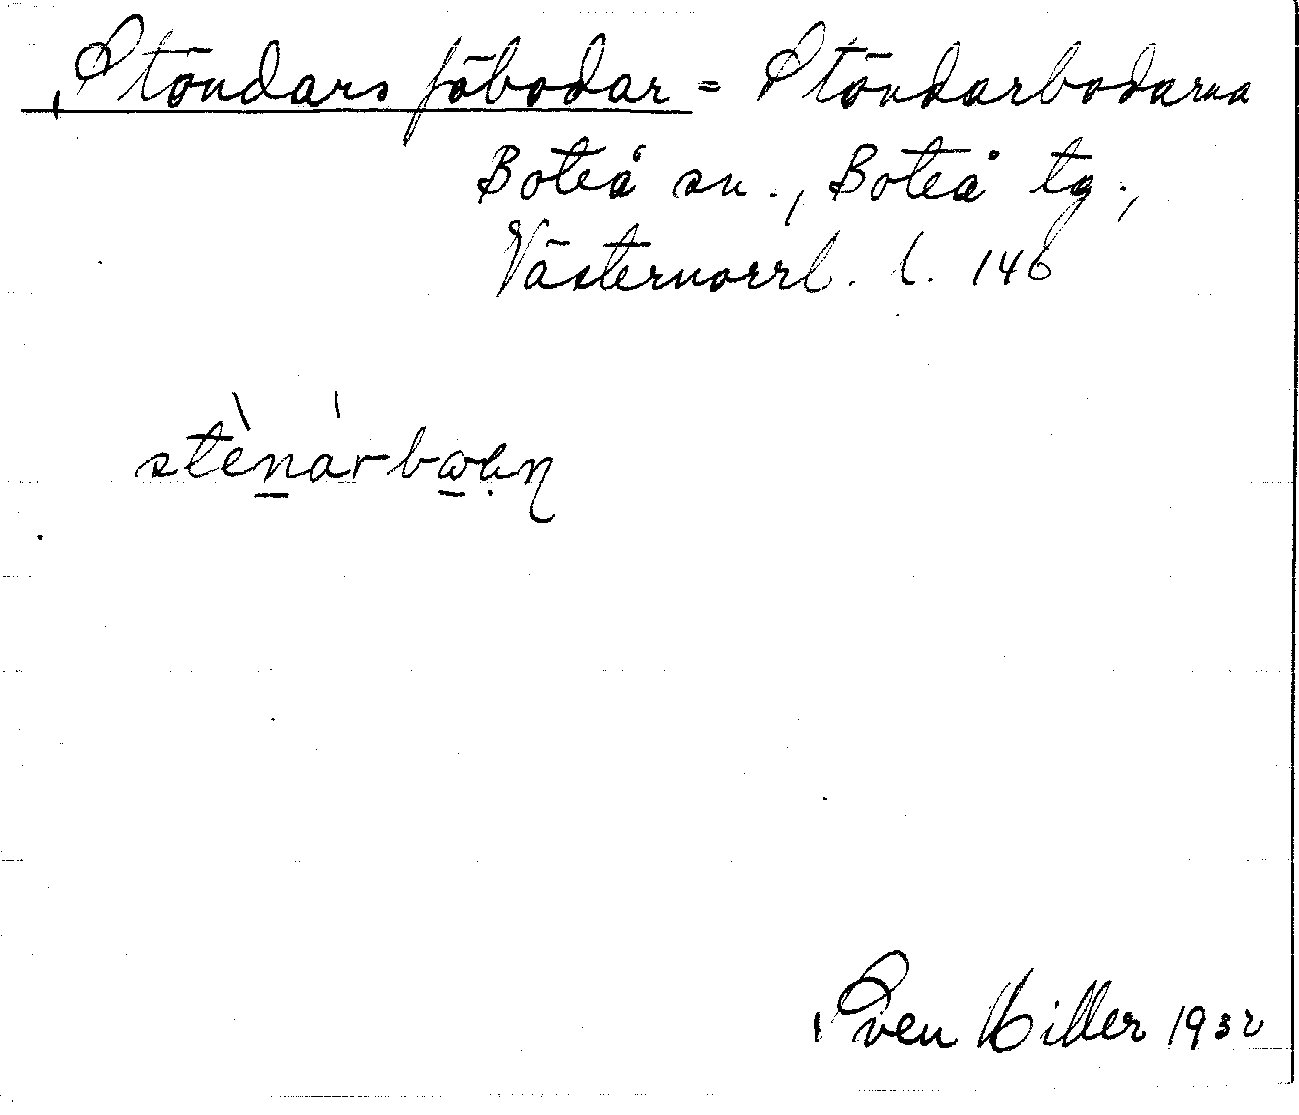 Stöndars fäbodar = Stöndarbodarna
Boteå sn., Boteå tg.,
Västernorrl. l. 146
Sven Hiller 1932